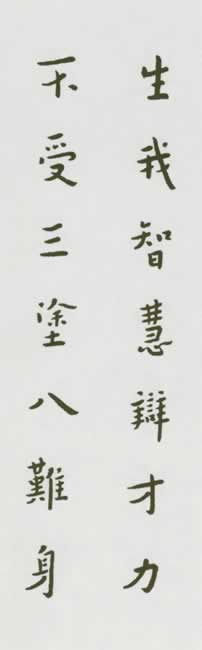 生我智慧辯才力
不受三塗八難身